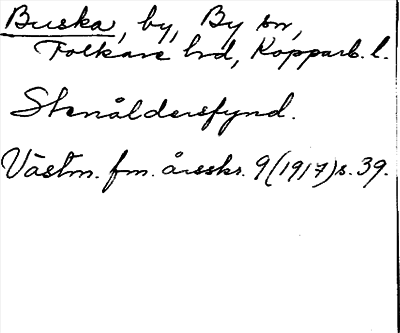 Buska, by, By sn,
Folkare hrd, Kopparb. l.
Stenåldersfynd.
Västm. fm. årsskr. 9 (1917) s. 39.